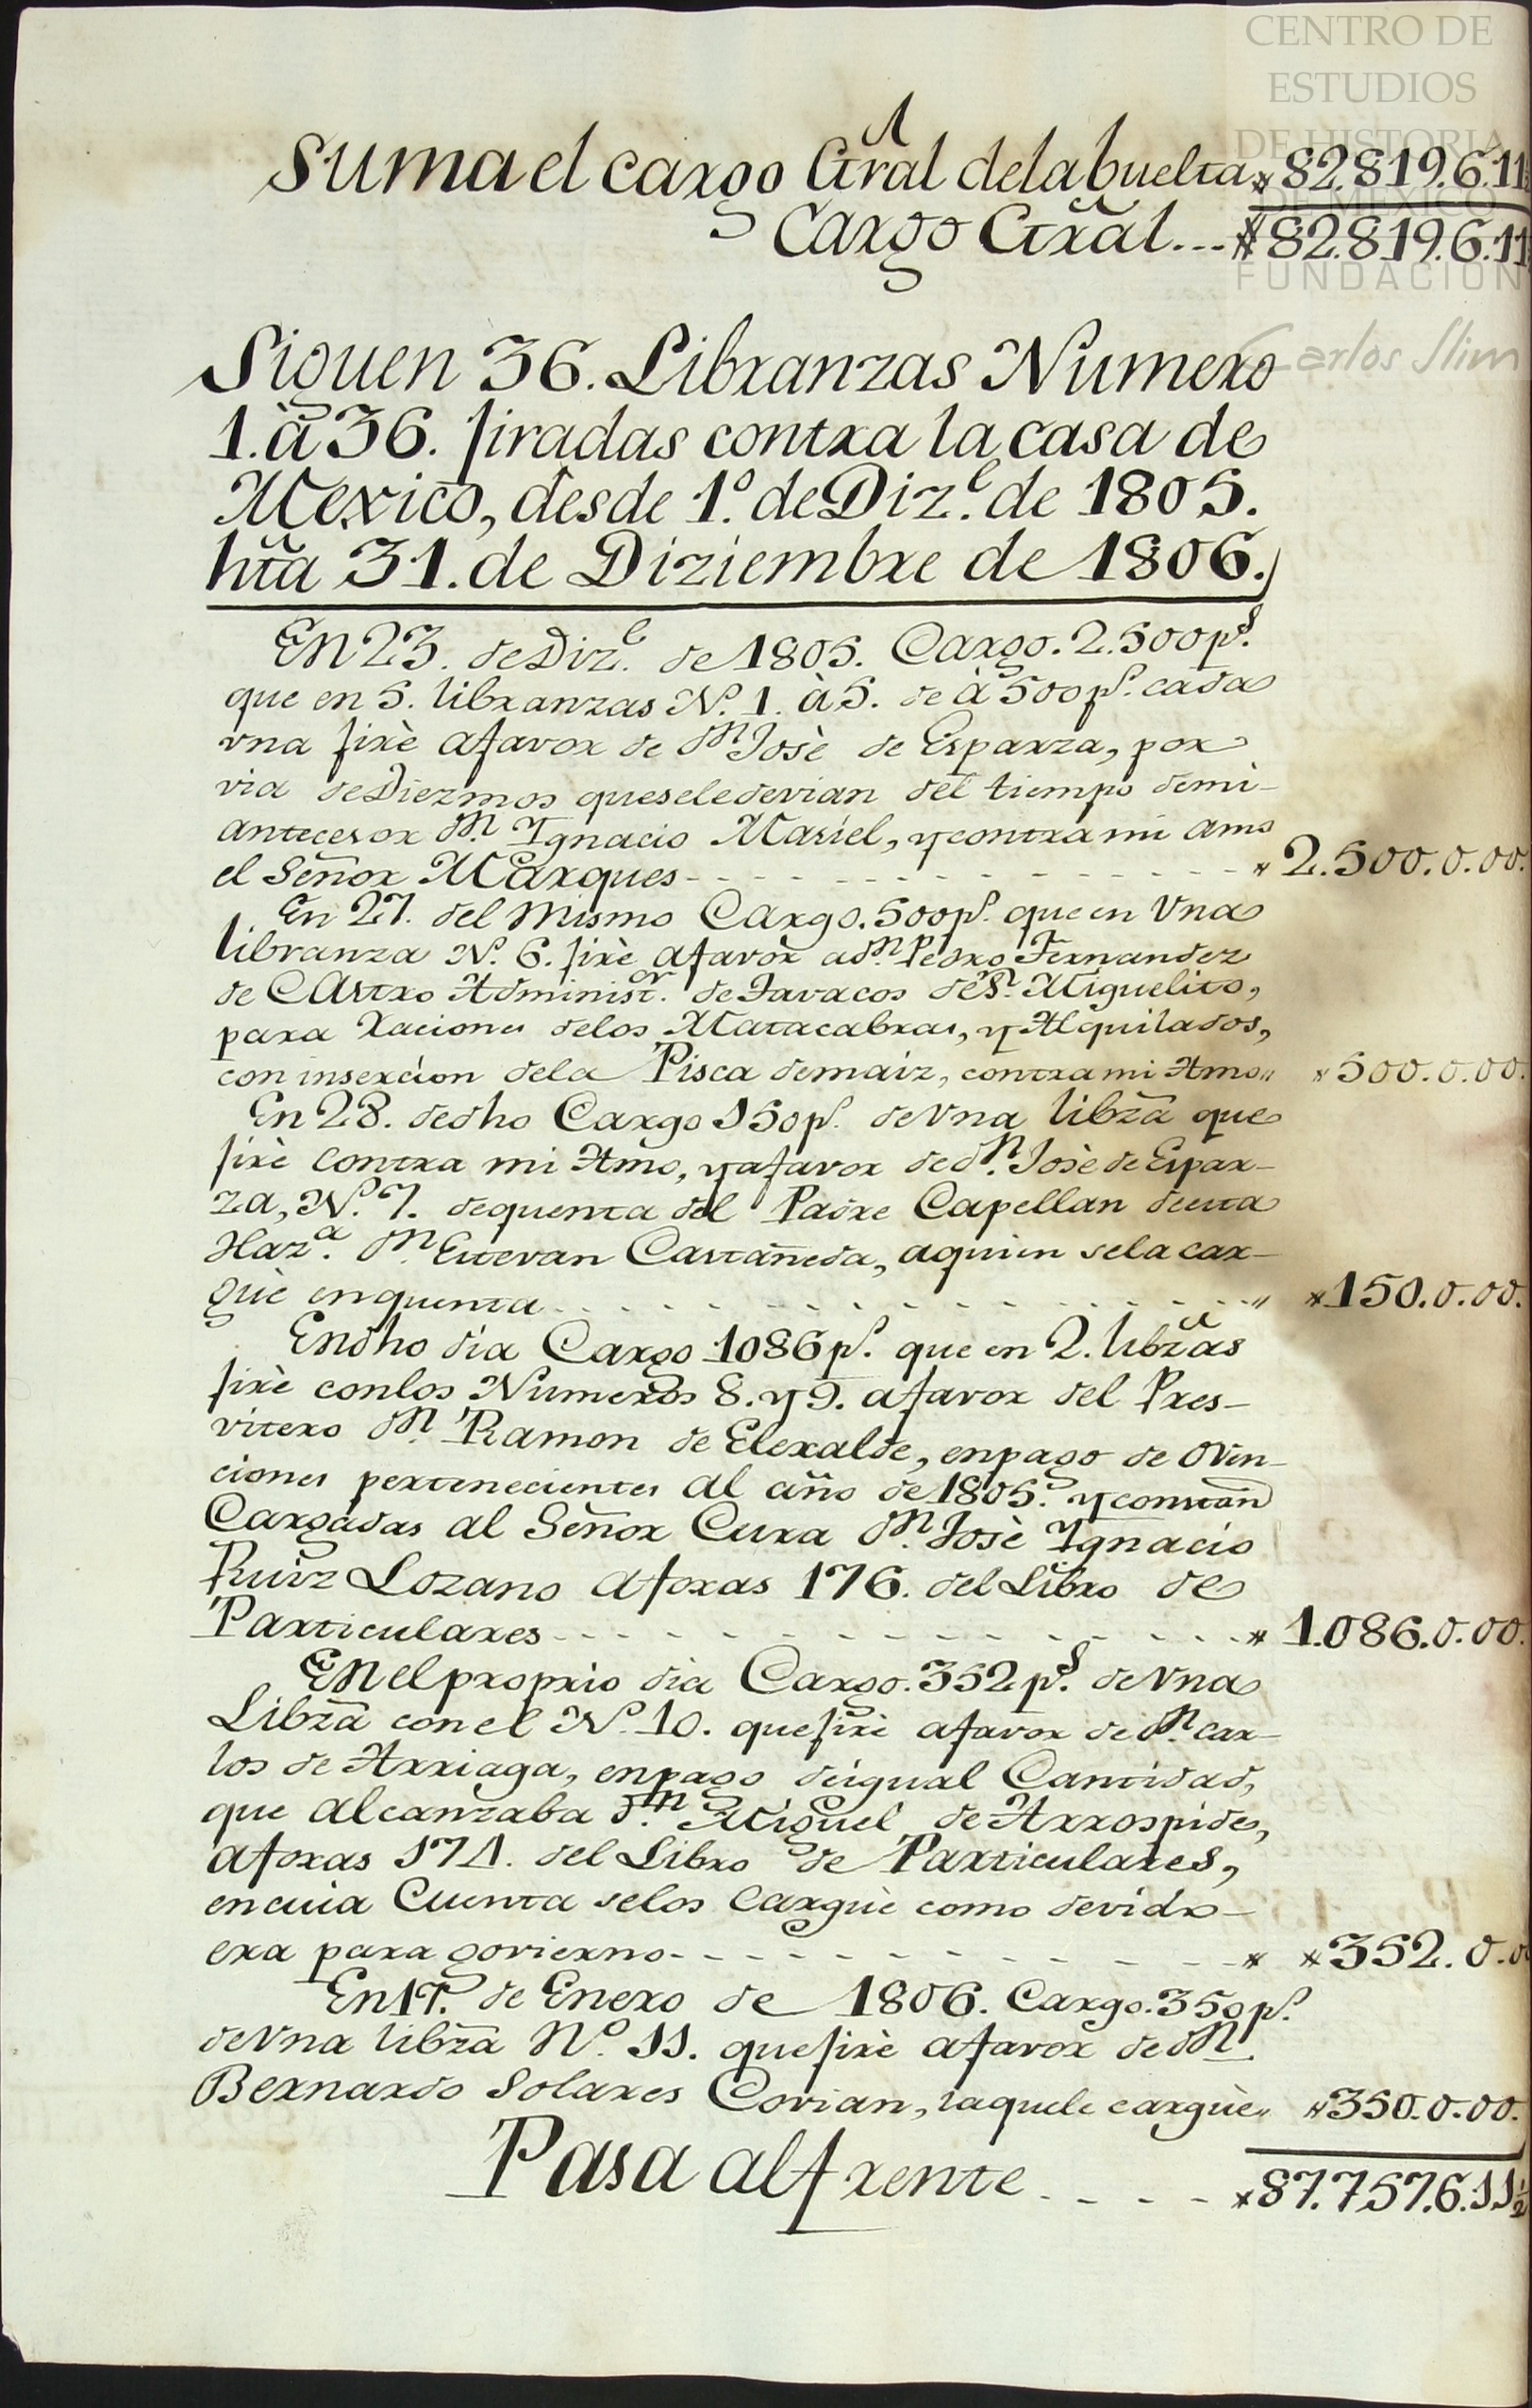 CENTRO DE
ESTUDIOS
DE HISTORIA
DE MEXICO
FUNDACION
Carlos Slim
Suma el cargo Gral dela buelta 82.819.6.11
Cargo Gral... 82.819.6.11
Siguen 36. Libranzas Numero
1. à 36. jiradas contra la casa de
Mexico, desde 1º. de Diz.e de 1805.
hta 31. de Diziembre de 1806.
En 23. de Diz.e de 1805. Cargo. 2.500 p.s
que en 5. libranzas Nº. 1. à 5. de à 500 p.s cada
vna jirè afavor de dn. Josè de Esparza, por
via de Diezmos que se le devian del tiempo demi-
antecesor dn. Ignacio Mariel, y contra mi amo
el Señor Marques - - - - 2.500.0.00.
En 27. del mismo Cargo. 500 p.s que en Vna
libranza Nº. 6. jirè afavor a dn. Pedro Fernandez
de Castro Administ.or de Tavacos de Sn. Miguelito,
para raciones delos Matacabras, y Alquilados,
con insercion dela Pisca demaiz, contra mi Amo,, 500.0.00.
En 28. dedho Cargo 150 p.s de Vna libza que
jirè contra mi Amo, y afavor de dn. Josè de Espar-
za, Nº. 7. dequenta del Padre Capellan desta
Haz.a dn. Estevan Castañeda, aquien sela car-
guè enquenta - - - - ,, 150.0.00.
Endho dia Cargo 1086 p.s que en 2. libzas
jirè conlos Numeros 8. y 9. afavor del Pres-
vitero dn. Ramon de Elexalde, enpago de Oven-
ciones pertenecientes al año de 1805. y constan
Cargadas al Señor Cura dn. Josè Ignacio
Ruiz Lozano afoxas 176. del Libro de
Particulares - - - - 1.086.0.00.
En el proprio dia Cargo. 352 p.s de Vna
Libza con el Nº. 10. que jirè afavor de dn. Car-
los de Arriaga, enpago deigual Cantidad,
que alcanzaba dn. Miguel de Arrospide,
afoxas 174. del Libro de Particulares,
encuia Cuenta selos Carguè como devido-
era para govierno - - - - 352.0.0
En 17. de Enero de 1806. Cargo. 350 p.s
de Vna libza Nº. 11. que jirè afavor de dn.
Bernardo Solares Covian, laquele carguè,, 350.0.00.
Pasa alfrente - - - - 87.757.6.11½